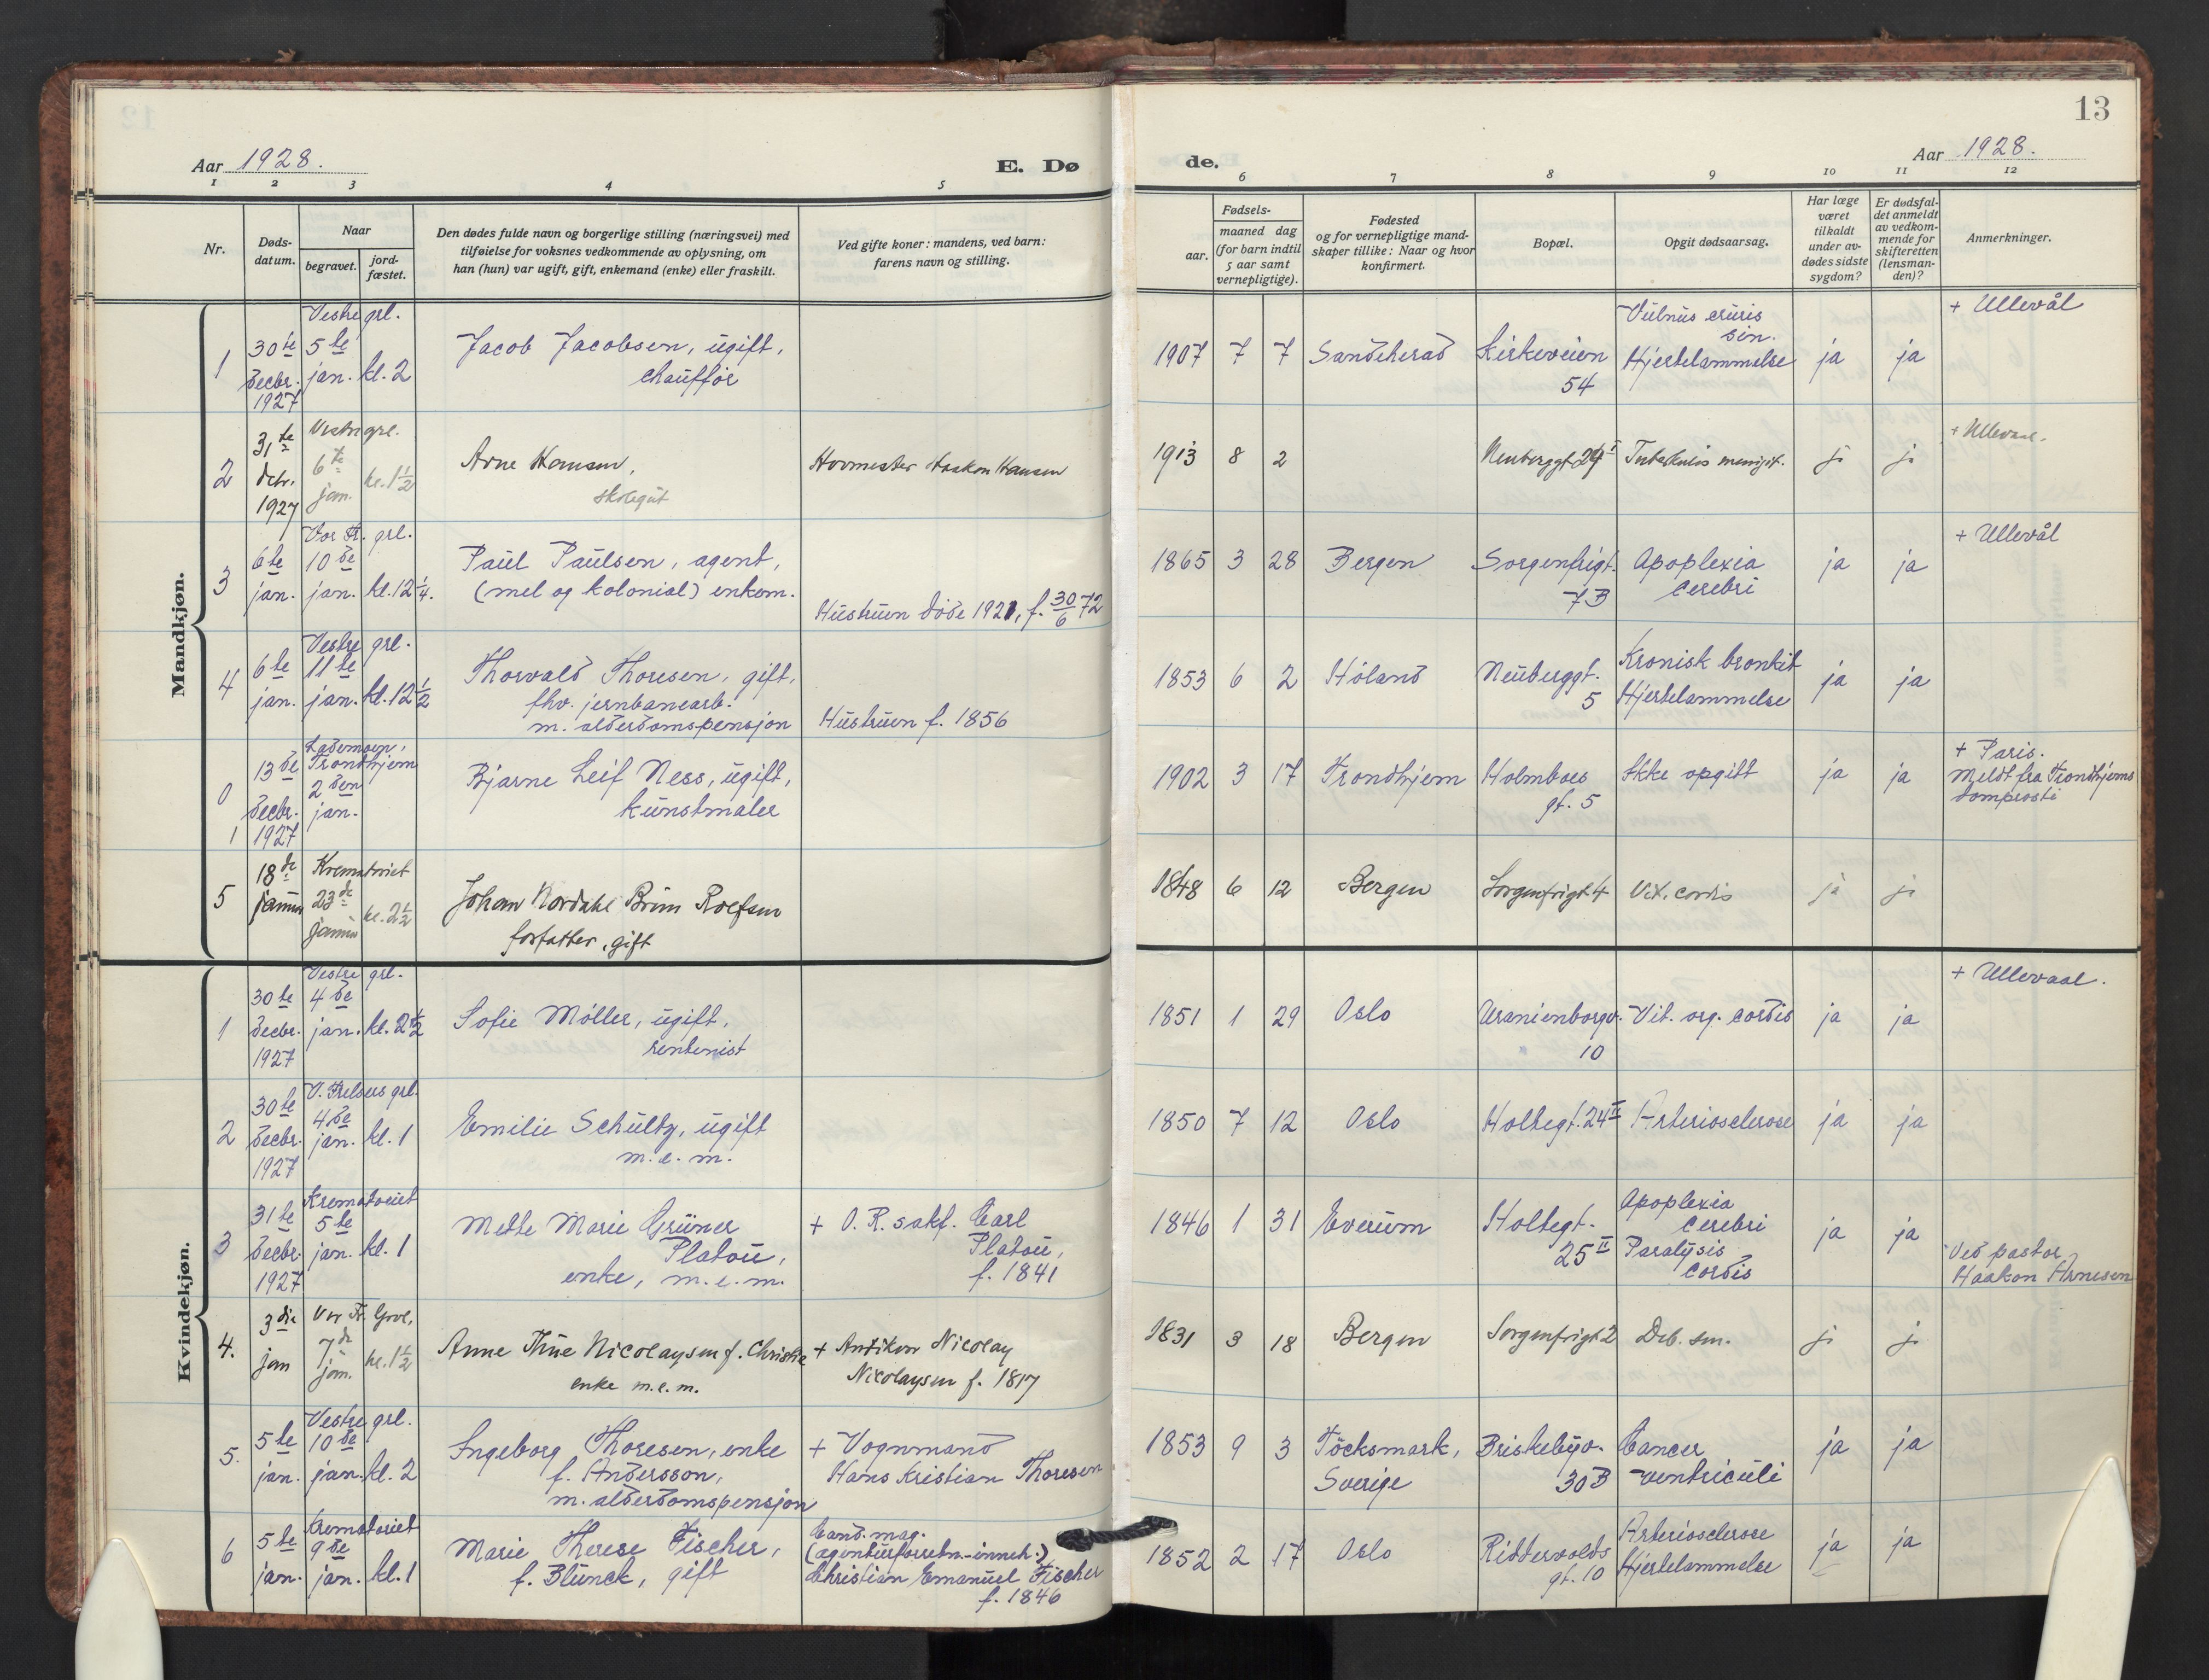 13
Aar 1928.
E. Dø
de.
Aar 1928.
1 2 3 4 5
6 7 8 9 10 11 12
Nr.
Døds-
datum.
Naar
begravet.
jord-
fæstet.
Den dødes fulde navn og borgerlige stilling (næringsvei) med
tilføielse for voksnes vedkommende av oplysning, om
han (hun) var ugift, gift, enkemand (enke) eller fraskilt.
Ved gifte koner: mandens, ved barn:
farens navn og stilling.
Fødsels-
aar.
maaned dag
(for barn indtil
5 aar samt
vernepligtige).
Fødested
og for vernepligtige mand-
skaper tillike: Naar og hvor
konfirmert.
Bopæl.
Opgit dødsaarsag.
Har læge
været
tilkaldt
under av-
dødes sidste
sygdom?
Er dødsfal-
det anmeldt
av vedkom-
mende for
skifteretten
(lensman-
den)?
Anmerkninger.
Mandkjøn.
1
30te
decbr.
1927
Vestre grl.
5te
jan. kl. 2
Jacob Jacobsen, ugift,
chauffør
1907 7 7 Sandeherad
Kirkeveien
54
Vulnus cruris
sin.
Hjertelammelse
ja ja
+ Ullevål
2
31te
decbr.
1927
Vestre grl.
6te
jan. kl. 1 1/2
Arne Hansen,
skolegut
Hovmester Haakon Hansen
1913 8 2
Neuberggt 24 I
Tuberkuløs meningit.
ja ja
+ Ullevaal.
3
6te
jan.
Vor Fr. grl.
10de
jan. kl. 12 1/4.
Paul Paulsen, agent,
(mel og kolonial) enkem.
Hustruen døde 1921, f. 30/6 72
1865 3 28 Bergen
Sorgenfrigt.
7B
Apoplexia
cerebri
ja ja
+ Ullevål
4
6te
jan.
Vestre grl.
11te
jan. kl. 12 1/2
Thorvald Thoresen, gift,
fhv. jernbanearb.
m. alderdomspensjon
Hustruen f. 1856
1853 6 2 Høland
Neuberggt.
5
Kronisk bronkit
Hjertelammelse
ja ja
0
1
13de
decbr.
1927
Lademoen,
Trondhjem
2den
jan.
Bjarne Leif Ness, ugift,
kunstmaler
1902 3 17 Trondhjem
Holmboes
gt. 5
Ikke opgitt
ja ja
+ Paris.
Meldt fra Trondhjems
domprosti
5
18de
januar
Krematoriet
23de
januar kl. 2 1/2
Johan Nordahl Brun Rolfsen
forfatter, gift
1848 6 12 Bergen
Sorgenfrigt 4
Vit. cordis
ja ja
Kvindekjøn.
1
30te
decbr.
1927
Vestre grl.
4de
jan. kl. 2 1/2
Sofie Møller, ugift,
rentenist
1851 1 29 Oslo
Uranienborgv.
10
Vit. org. cordis
ja ja
+ Ullevaal.
2
30te
decbr.
1927
V. Frelsers grl.
4de
jan. kl. 1
Emilie Schultz, ugift
m.e.m.
1850 7 12 Oslo
Holtegt. 24 II
Arteriosclerose
ja ja
3
31te
decbr.
1927
Krematoriet
5te
jan. kl. 1
Mette Marie Grüner
Platou,
enke, m.e.m.
+ O.R.sakf. Carl
Platou,
f. 1841
1846 1 31 Everum
Holtegt.
25 II
Apoplexia
cerebri
Paralysis
cordis
ja ja
Ved pastor
Haakon Arnesen
4.
3die
jan
Vor Fr. Grvl.
7de
jan. kl. 1 1/2
Anne Thue Nicolaysen f. Christie
enke m.e.m.
+ Antikvar Nicolay
Nicolaysen f. 1817
1831 3 18 Bergen
Sorgenfrigt 2
Deb. sen.
ja ja
5.
5te
jan.
Vestre grl.
10de
jan. kl. 2
Ingeborg Thoresen, enke
f. Andersson,
m. alderdomspensjon
+ Vognmand
Hans Kristian Thoresen
1853 9 3
Töcksmark,
Sverige
Briskebyv.
30B
Cancer
ventriculi
ja ja
6
5te
jan.
Krematoriet
9de
jan. kl. 1
Marie Therese Fischer,
f. Blunck, gift
Cand. mag.
(agenturforretn.-inneh.)
Christian Emanuel Fischer
f. 1846
1852 2 17 Oslo
Riddervolds
gt. 10
Arteriosclerose
Hjertelammelse
ja ja